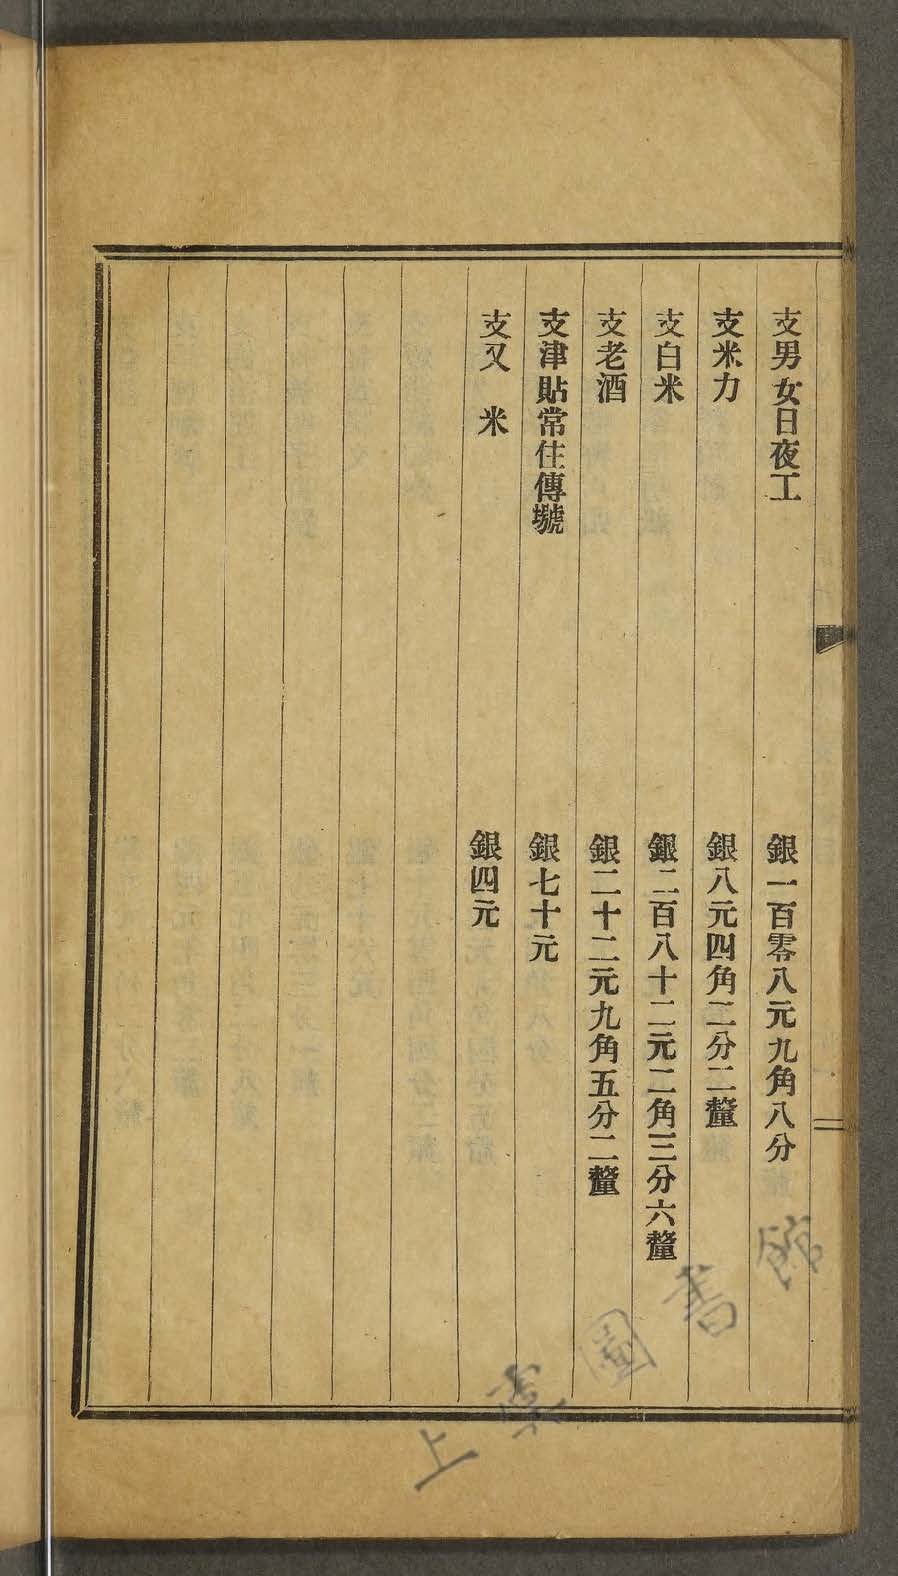 支男女日夜工　銀一百零八元九角八分
支米力　銀八元四角二分二釐
支白米　銀二百八十二元二角三分六釐
支老酒　銀二十二元九角五分二釐
支津貼常住傳號　銀七十元
支又　米　銀四元
二
上虞圖書館